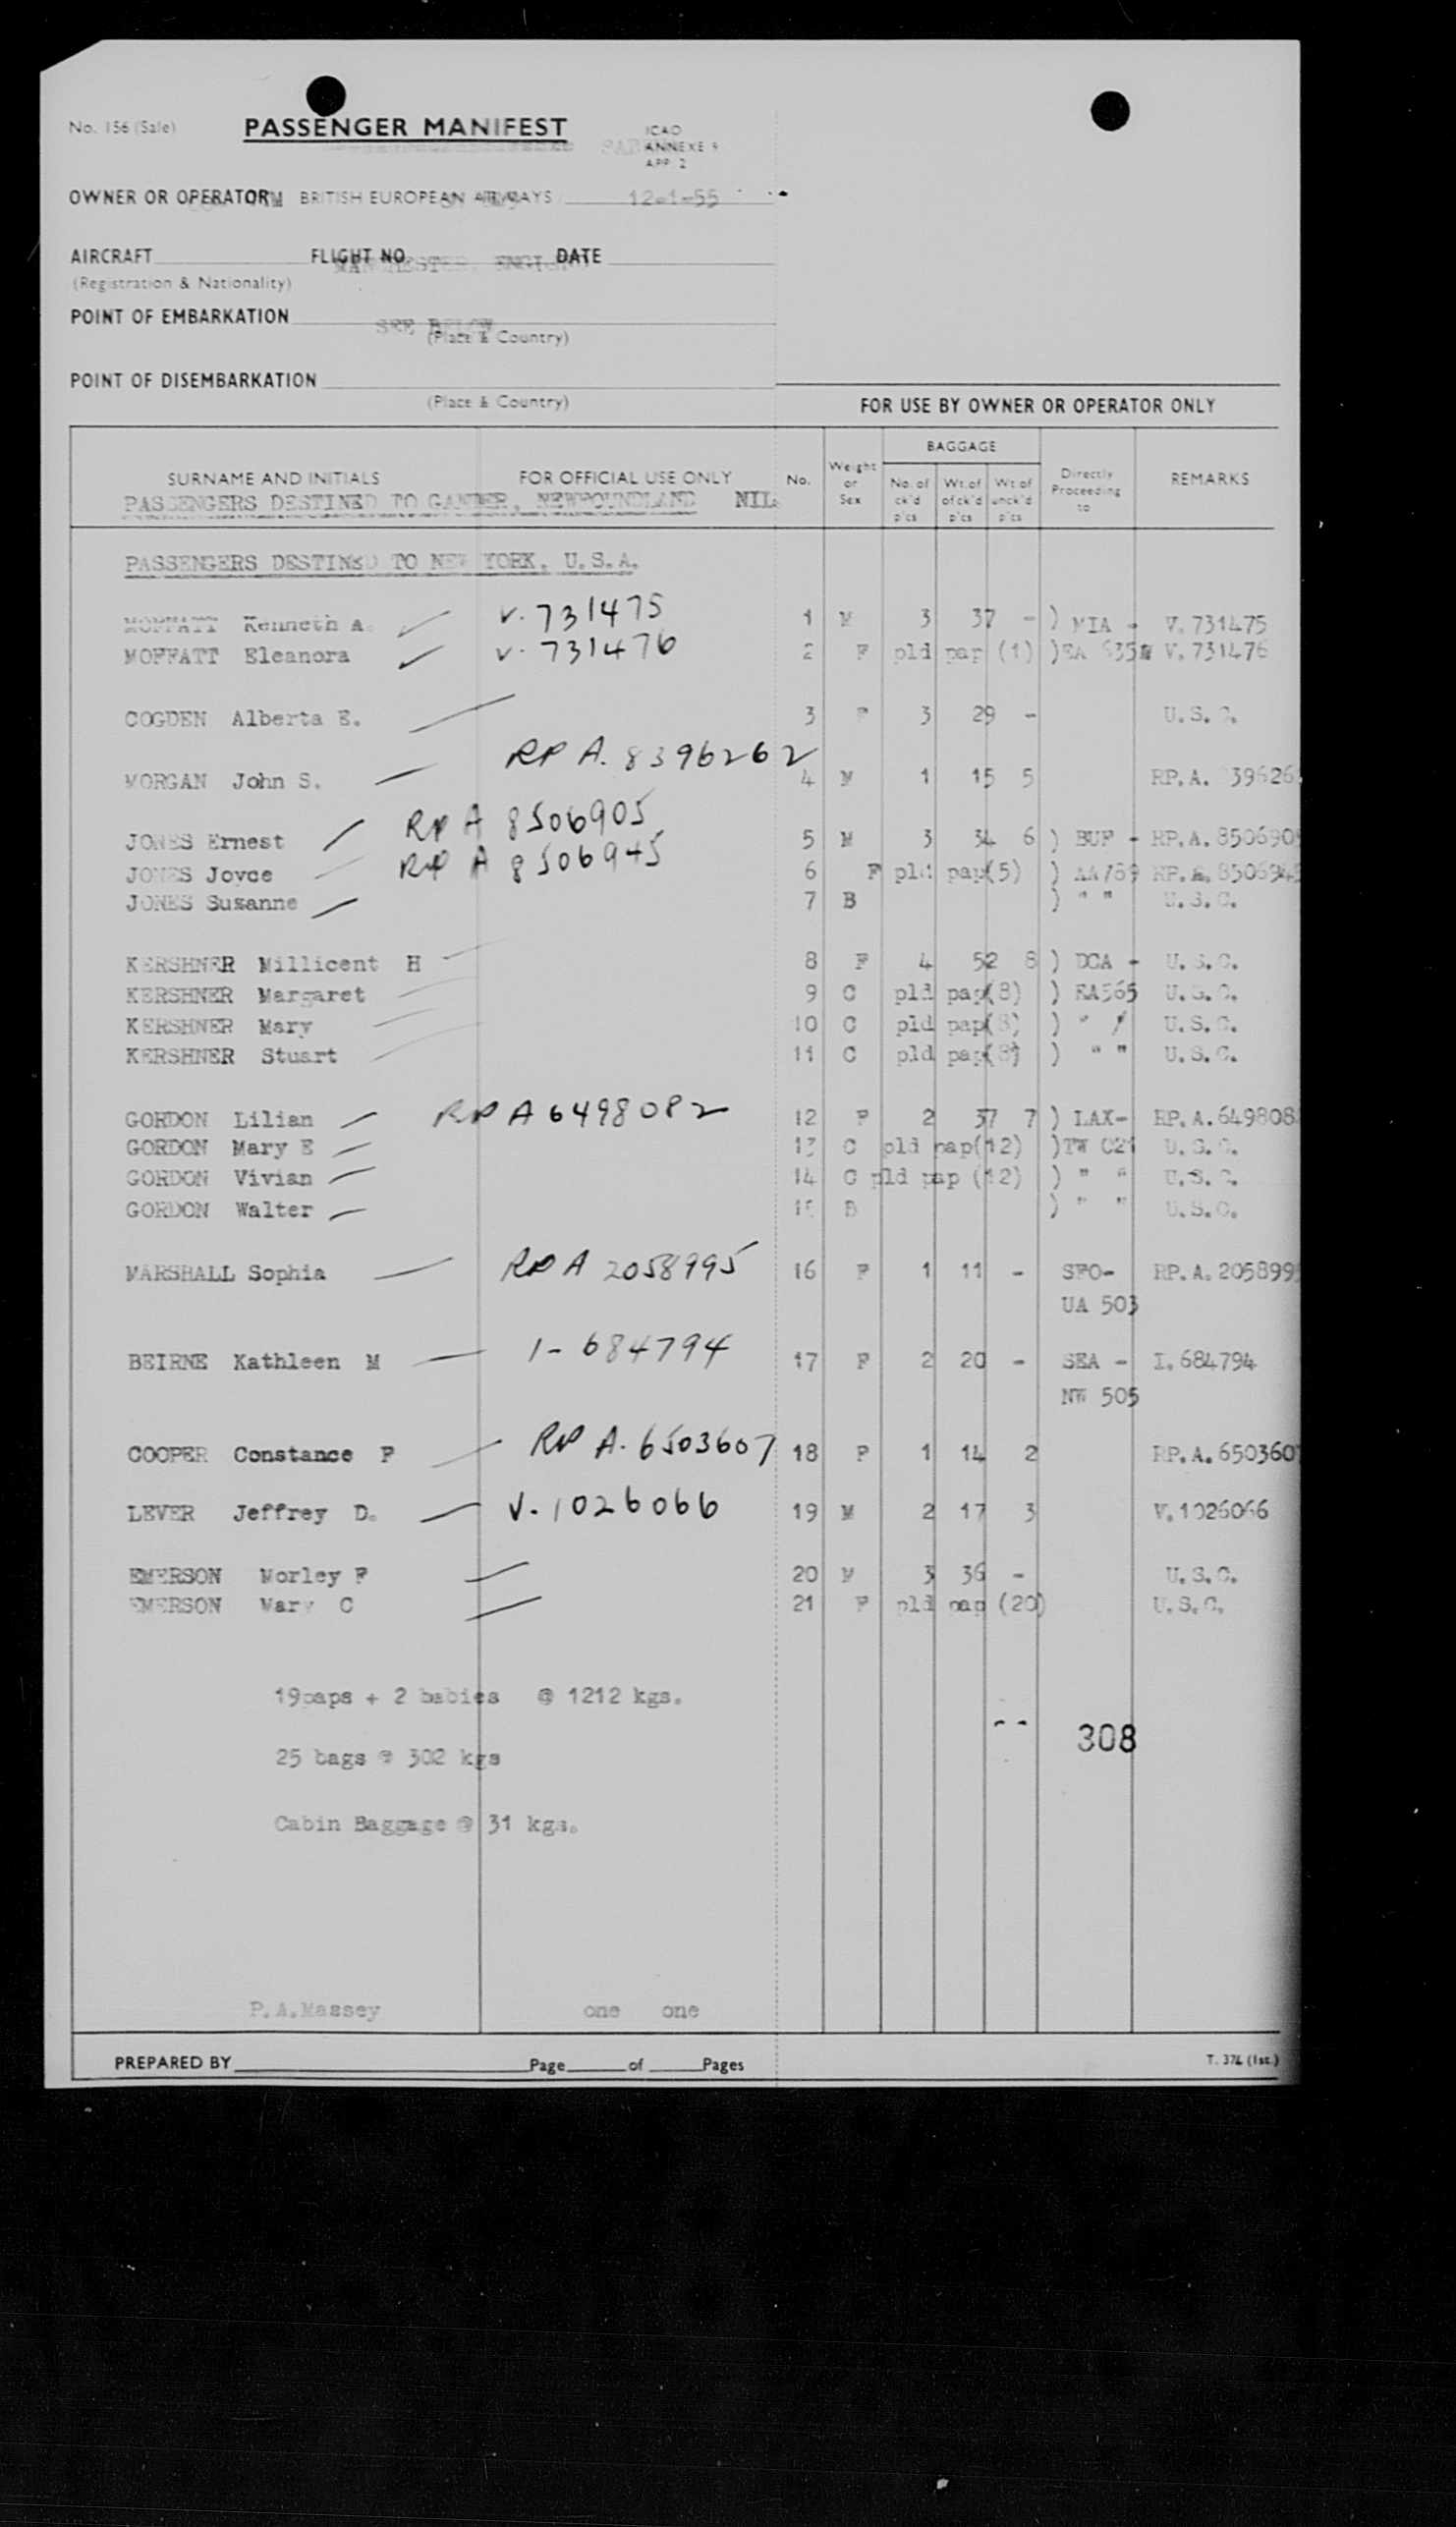 No. 156 (Sale) PASSENGER MANIFEST ICAO
ANNEXE 9
APP 2
OWNER OR OPERATOR BRITISH EUROPEAN AIRWAYS 12-1-55
AIRCRAFT FLIGHT NO. DATE
MANCHESTER, ENGLAND
(Registration & Nationality)
POINT OF EMBARKATION
SEE BELOW
(Place & Country)
POINT OF DISEMBARKATION
(Place & Country)
FOR USE BY OWNER OR OPERATOR ONLY
SURNAME AND INITIALS FOR OFFICIAL USE ONLY No. Weight or Sex BAGGAGE No. of ck'd p'cs Wt. of ck'd p'cs Wt. of unck'd p'cs Directly Proceeding to REMARKS
PASSENGERS DESTINED TO GANDER, NEWFOUNDLAND NIL
PASSENGERS DESTINED TO NEW YORK, U.S.A.
MOFFATT Kenneth A. V. 731475 1 M 3 37 - ) MIA - V. 731475
MOFFATT Eleanora V. 731476 2 F pld pap (1) )EA V. 731476
COGDEN Alberta E. 3 F 3 29 - U.S.C.
MORGAN John S. RP A. 8396262 4 M 1 15 5 RP.A. 39626
JONES Ernest RP A 8506905 5 M 3 34 6 ) BUF - RP.A. 850690
JONES Joyce RP A 8506945 6 F pld pap(5) ) AA769 RP.A. 850694
JONES Susanne 7 B ) " " U.S.C.
KERSHNER Millicent H 8 F 4 52 8 ) DCA - U.S.C.
KERSHNER Margaret 9 C pld pap(8) ) EA565 U.S.C.
KERSHNER Mary 10 C pld pap(8) ) " " U.S.C.
KERSHNER Stuart 11 C pld pap(8) ) " " U.S.C.
GORDON Lilian RP A6498082 12 F 2 37 7 ) LAX- RP.A. 649808
GORDON Mary E 13 C pld pap(12) )TW 021 U.S.C.
GORDON Vivian 14 C pld pap (12) ) " " U.S.C.
GORDON Walter 15 B ) " " U.S.C.
MARSHALL Sophia RP A 2058995 16 F 1 11 - SFO- RP.A. 205899
UA 503
BEIRNE Kathleen M 1-684794 17 F 2 20 - SEA - I. 684794
NW 505
COOPER Constance F RP A. 6503607 18 F 1 14 2 RP.A. 650360
LEVER Jeffrey D. V. 1026066 19 M 2 17 3 V. 1026066
EMERSON Morley F 20 M 3 36 - U.S.C.
EMERSON Mary C 21 F pld pap (20) U.S.C.
19paps + 2 babies @ 1212 kgs.
308
25 bags @ 302 kgs
Cabin Baggage @ 31 kgs.
P.A.Massey one one
PREPARED BY Page of Pages T. 374 (1st.)